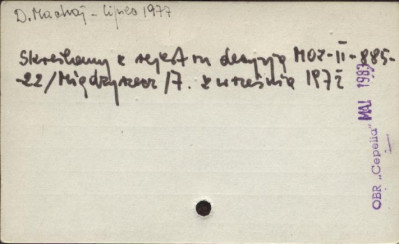 D. Machaj - lipiec 1977
Skreślamy z rejestru decyzją MOZ-II-885-
-22/Międzyrzecz/7. września 1972
OBR „Cepelia" MAJ 1983